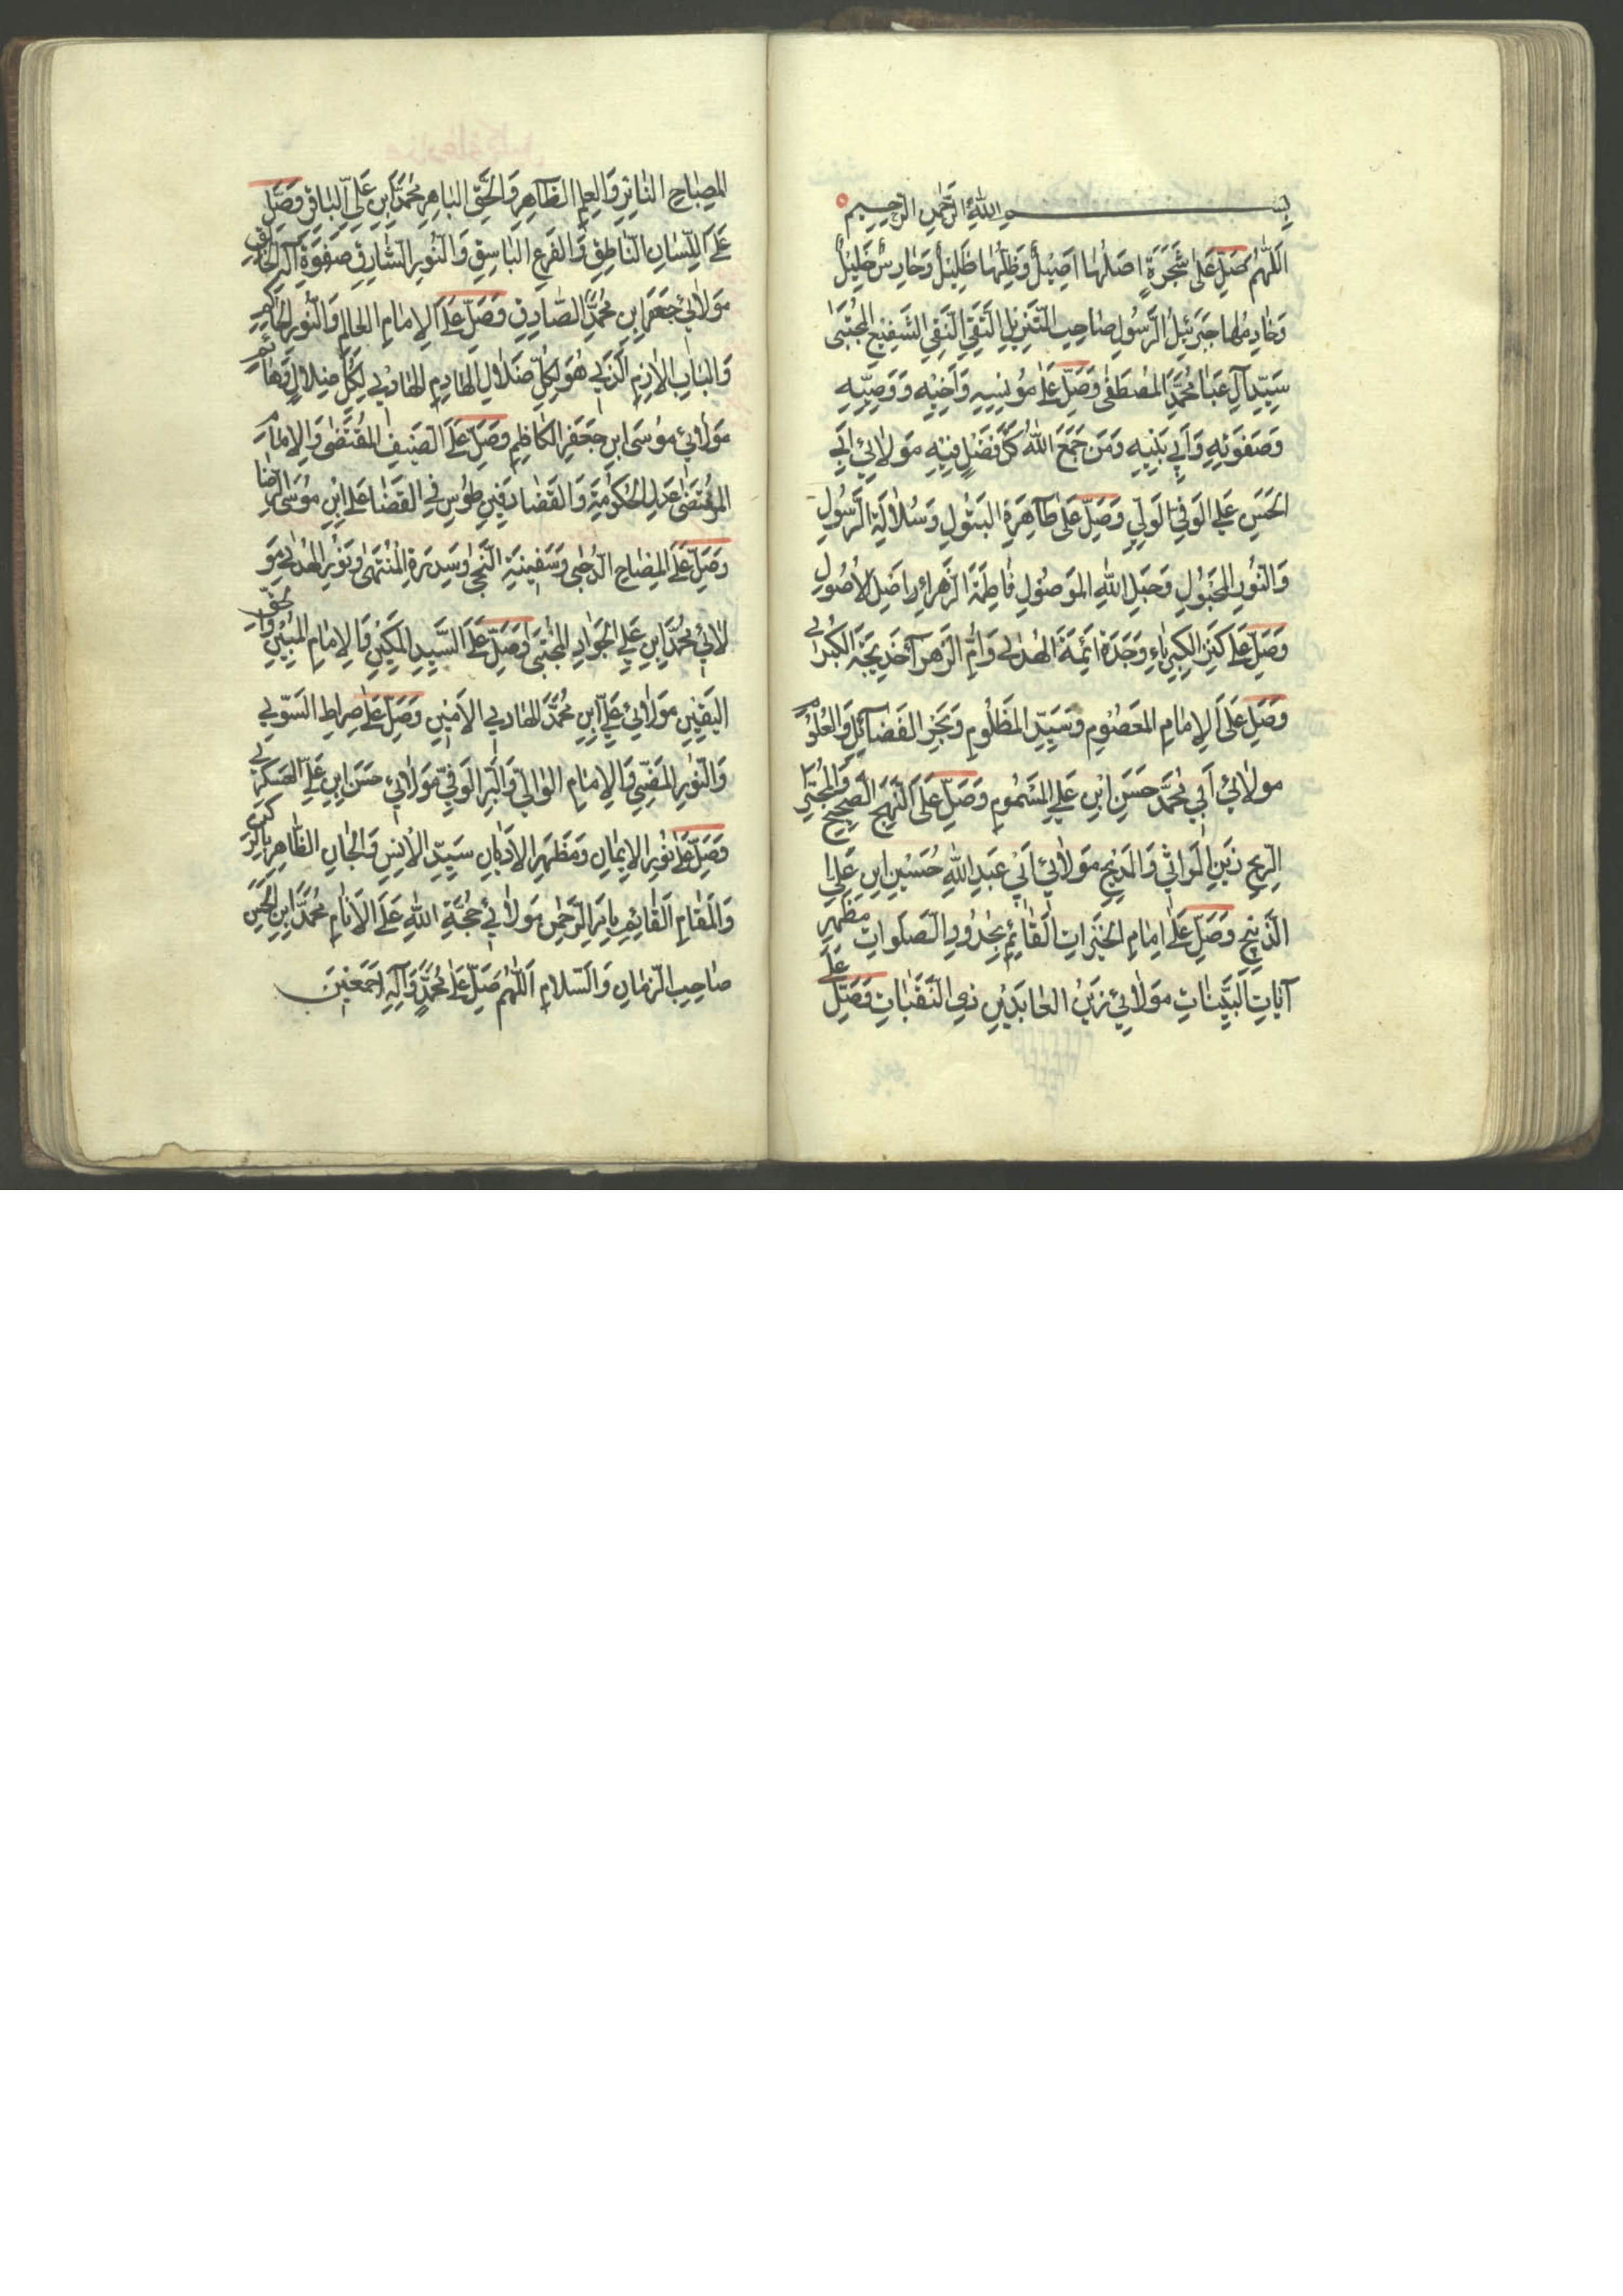 بسم الله الرحمن الرحيم
اَللّهُمَّ صَلِّ عَلیٰ شَجَرَةٍ اَصْلُهَا اَصِيْلٌ وَظِلُّهَا ظَلِيْلٌ وَحَارِسٌ خَلِيْلٌ
وَخَادِمُهَا جَبْرَئِيلُ الرَّسُولِ صَاحِبِ التَّنْزِيلِ التَّقِيِّ النَّقِيِّ الشَّفِيْعِ الْمُجْتَبىٰ
سَيِّدِ آلِ عَبَا مُحَمَّدٍ المُصْطَفىٰ وَصَلِّ عَلىٰ مُؤنِسِيهِ وَاَخِيْهِ وَوَصِيِّهِ
وَصَفْوَتِهِ وَاَبِي بَنِيْهِ وَمَن جَمَعَ اللهُ كُلَّ فَضْلٍ فِيْهِ مَوْلائِي اَبِي
الحَسَنِ عَلِي الوَفِيِّ الوَلِيِّ وَصَلِّ عَلىٰ طَآهِرَةِ البَتُولِ وَسُلَالَةِ الرَّسُولِ
وَالنُّورِ المَجْبُولِ وَحَبْلِ اللهِ المَوصُولِ فَاطِمَةَ الزَّهْرَاءِ اَصْلِ الاُصُولِ
وَصَلِّ عَلىٰ كَنْزِ الكِبْرِيَاءِ وَجَدَةِ اَئِمَةِ الهُدىٰ وَاُمِّ الزَهرَآ خَدِيجَةِ الكُبْرىٰ
وَصَلِّ عَلَى الاِمَامِ المَعصُومِ وَسَيِّدِ المَظلُومِ وَبَحرِ الفَضَآئِلِ وَالعُلُومِ
مولائي اَبي مُحَمَّد حَسَنِ ابنِ عَلِي المَسْمُومِ وَصَلِّ عَلَى النَّهجِ الصَحِيحِ
زَيْنِ المَوَاثِي وَالمَدِيحِ مَوْلائِي اَبِي عَبدِ اللهِ حُسَيْنِ ابنِ عَلِي
الذَبِيحِ وَصَلِّ عَلىٰ اِمَامِ الخَيْرَاتِ القَائِمِ بِحُدُودِ الصَلَواتِ مَظْهَرِ
آيَاتِ البَيِّنَاتِ مَوْلائِي زَيْنُ العَابِدَيْنِ ذِي النَقَبَاتِ وَصَلِّ عَلَى
المِصبَاحِ النَائِرِ وَالعِلمِ الظَاهِرِ وَالحَقِّ البَاهِرِ مُحَمَّدِ ابنِ عَلِيِّ البَاقِرِ وَصَلِّ
عَلَى اللِّسَانِ النَاطِقِ وَالفَرعِ البَاسِقِ وَالنُورِ الشَّارِقِ صَفْوَةِ
مَوْلائِي جَعفَرِ ابنِ مُحَمَّدِ الصَادِقِ وَصَلِّ عَلَى الاِمَامِ العَالِمِ وَالنُورِ
وَالبَابِ الاَزِمِ الَذِي هُوَ لِكُلِّ ضَلَالِ الهَادِمِ الهَادِي لِكُلِّ ضِلالٍ
مَوْلائِي مُوسَى ابنِ جَعفَرِ الكَاظِمِ وَصَلِّ عَلَى الصَيفِ المُقْتَضى وَالاِمَامِ
المُرتَضى عَدلِ الحُكُومَةِ وَالقَضَا دَفِينِ طُوْسِ فِي القَضَا عَلِي ابنِ مُوسَى الرِضَا
وَصَلِّ عَلَى المِصبَاحِ الدُجىٰ وَسَفِينَةِ النَجىٰ وَسِدرَةِ المُنتَهىٰ وَنُورِ الهُدىٰ مَو
لائي مُحَمَّدِ ابنِ عَلِي الجَوَادِ المُجْتَبىٰ وَصَلِّ عَلَى السَّيِدِ المَكِينِ وَالاِمَامِ المُبِينِ وَالحَقِّ
اليَقِينِ مَوْلائِي عَلِيِّ ابنِ مُحَمَّدَ الهَادِي الاَمِينِ وَصَلِّ عَلىٰ صِرَاطِ السَوِّيِّ
وَالنُورِ المُضِيِّ وَالاِمَامِ الوَالِيِّ وَالبَرِّ الوَفِيِّ مَوْلائِي حَسَنَ ابنِ عَلِيِّ العَسكَرِي
وَصَلِّ عَلىٰ نُورِ الاِيمَانِ وَمَظهَرِ الاَديَانِ سَيِّدِ الاِنسِ وَالجَانِ الظَاهِرِ
وَالمَقَامِ القَائِمِ بِاَمرِ الرَحمٰنِ مَوْلائِي حُجَّةِ اللهِ عَلَى الاَنَامِ مُحَمَّدِ ابنِ الحَسَنِ
صَاحِبِ الزَمَانِ وَالسَلامِ اَللّهُمَّ صَلِّ عَلىٰ مُحَمَّدٍ وَآلِهِ اَجمَعِينَ